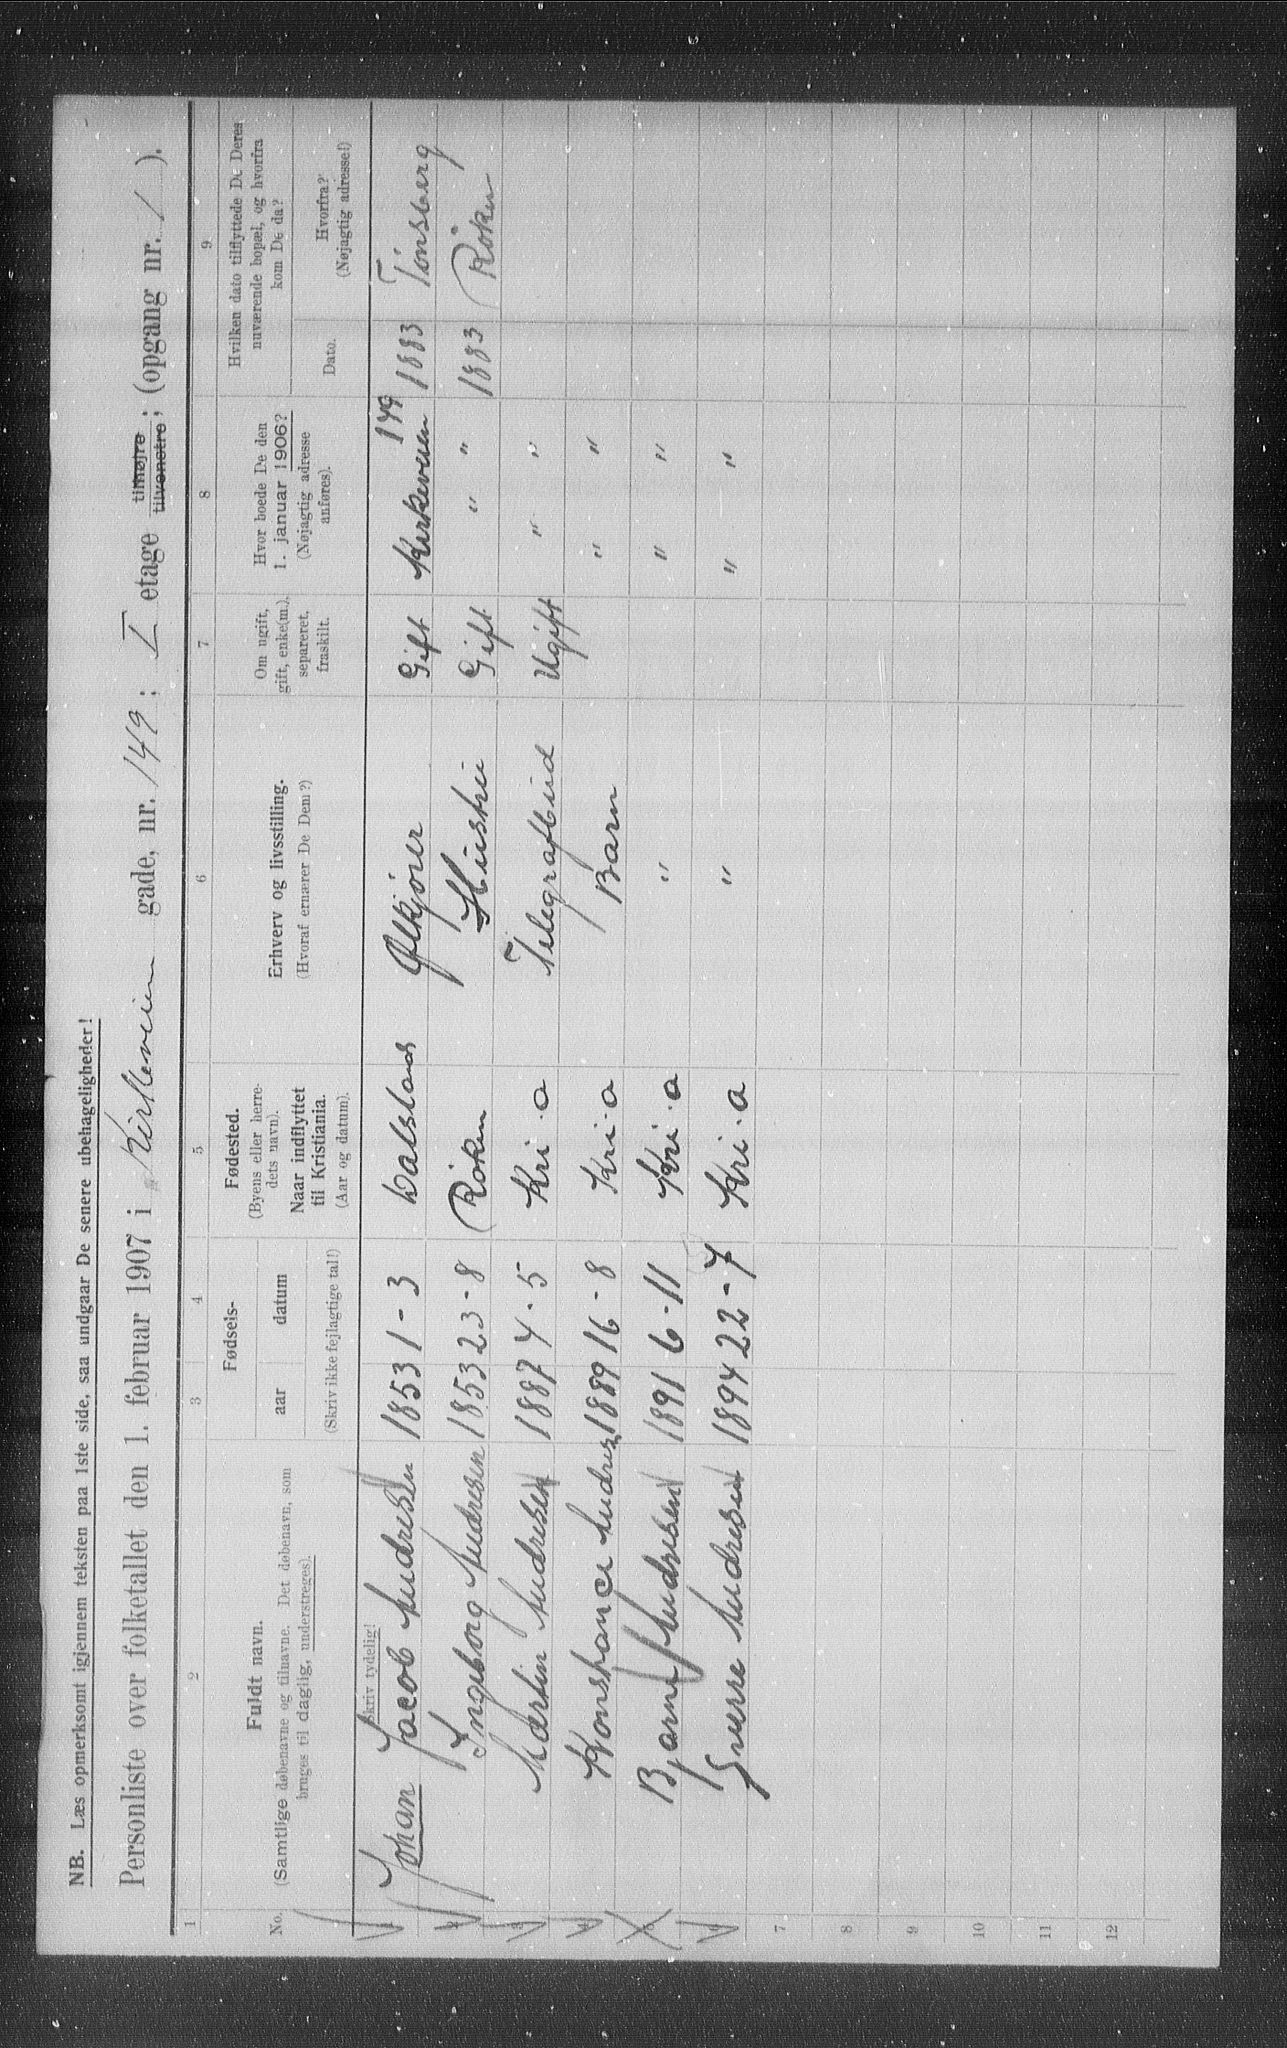 NB. Læs opmerksomt igjennem teksten paa 1ste side, saa undgaar De senere ubehageligheder!
Personliste over folketallet den 1. februar 1907 i Kirkeveien gade, nr. 149; I etage tilhøjre tilvenstre; (opgang nr. 1).
1 2 3 4 5 6 7 8 9
No.
Fuldt navn.
(Samtlige døbenavne og tilnavne. Det døbenavn, som
bruges til daglig, understreges).
Fødsels-
aar datum
(Skriv ikke fejlagtige tal!)
Fødested.
(Byens eller herre-
dets navn).
Naar indflyttet
til Kristiania.
(Aar og datum).
Erhverv og livsstilling.
(Hvoraf ernærer De Dem?)
Om ugift,
gift, enke(m.),
separeret,
fraskilt.
Hvor boede De den
1. januar 1906?
(Nøjagtig adresse
anføres).
Hvilken dato tilflyttede De Deres
nuværende bopæl, og hvorfra
kom De da?
Dato.
Hvorfra?
(Nøjagtig adresse!)
Skriv tydelig!
1 Johan Jacob Andresen 1853 1-3 Ølkjører Gift Kirkeveien 149 1883 Tönsberg
2 Ingeborg Andresen 1853 23-8 Röken Hustru Gift " " 1883 Röken
3 Martin Andresen 1887 4-5 Kri.a Telegrafbud Ugift " "
4 Konstance Andresen 1889 16-8 Kri.a Barn " "
5 Bjarne Andresen 1891 6-11 Kri.a " " "
6 Sverre Andresen 1894 22-7 Kri.a " " "
7
8
9
10
11
12